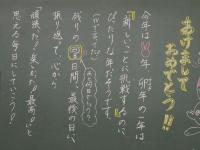 あけまして
おめでとう!!
今年は 年 卯年の一年は
『新しいことに挑戦する』のに、
ぴったりな年だそうです。
残りの 日間、最後の日に
振り返って、心から
「頑張った!楽しかった!最高!」と
思える毎日にしていこう!